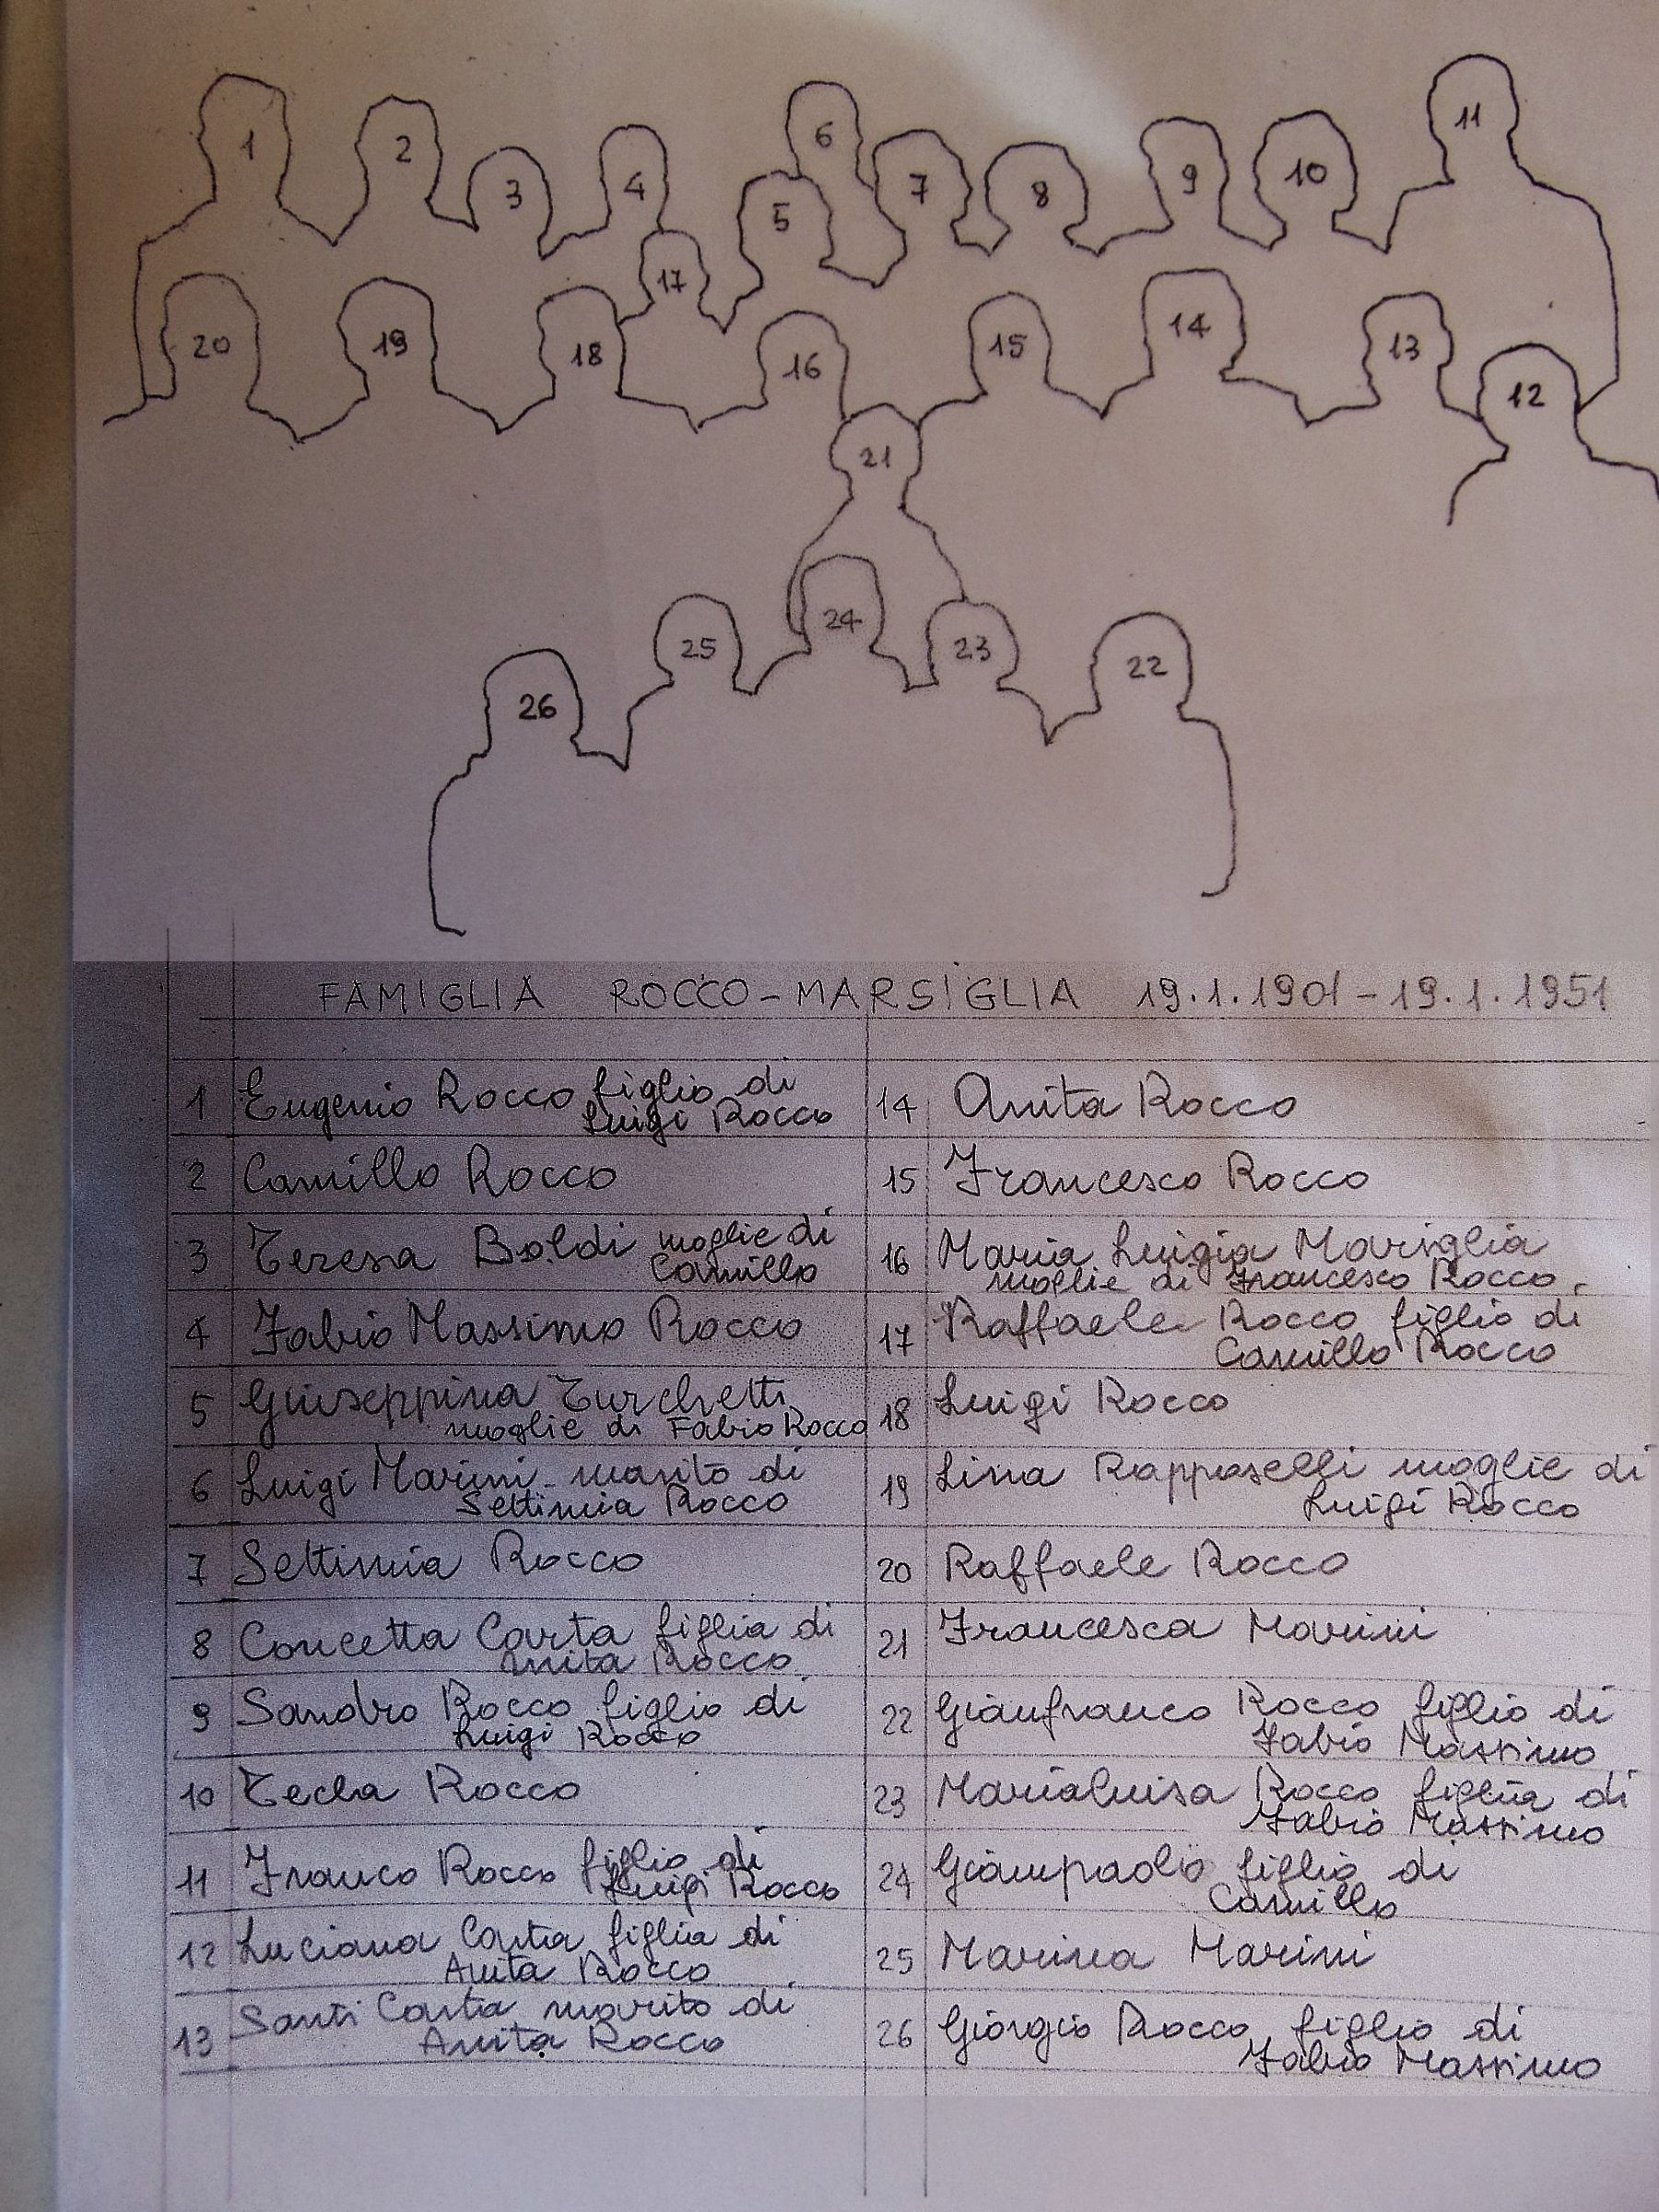 1
2
3
4
5
6
7
8
9
10
11
20
19
18
17
16
15
14
13
12
21
26
25
24
23
22
FAMIGLIA ROCCO-MARSIGLIA 19.1.1901-19.1.1951
1 Eugenio Rocco figlio di
Luigi Rocco
2 Camillo Rocco
3 Teresa Boldi moglie di
Camillo
4 Fabio Massimo Rocco
5 Giuseppina Turchetti
moglie di Fabio Rocco
6 Luigi Marini marito di
Settimia Rocco
7 Settimia Rocco
8 Concetta Carta figlia di
Anita Rocco
9 Sandro Rocco figlio di
Luigi Rocco
10 Tecla Rocco
11 Franco Rocco figlio di
Luigi Rocco
12 Luciana Carta figlia di
Anita Rocco
13 Santi Carta marito di
Anita Rocco
14 Anita Rocco
15 Francesco Rocco
16 Maria Luigia Marsiglia
moglie di Francesco Rocco
17 Raffaele Rocco figlio di
Camillo Rocco
18 Luigi Rocco
19 Lina Rappaselli moglie di
Luigi Rocco
20 Raffaele Rocco
21 Francesca Marini
22 Gianfranco Rocco figlio di
Fabio Massimo
23 Marialuisa Rocco figlia di
Fabio Massimo
24 Giampaolo figlio di
Camillo
25 Marina Marini
26 Giorgio Rocco figlio di
Fabio Massimo